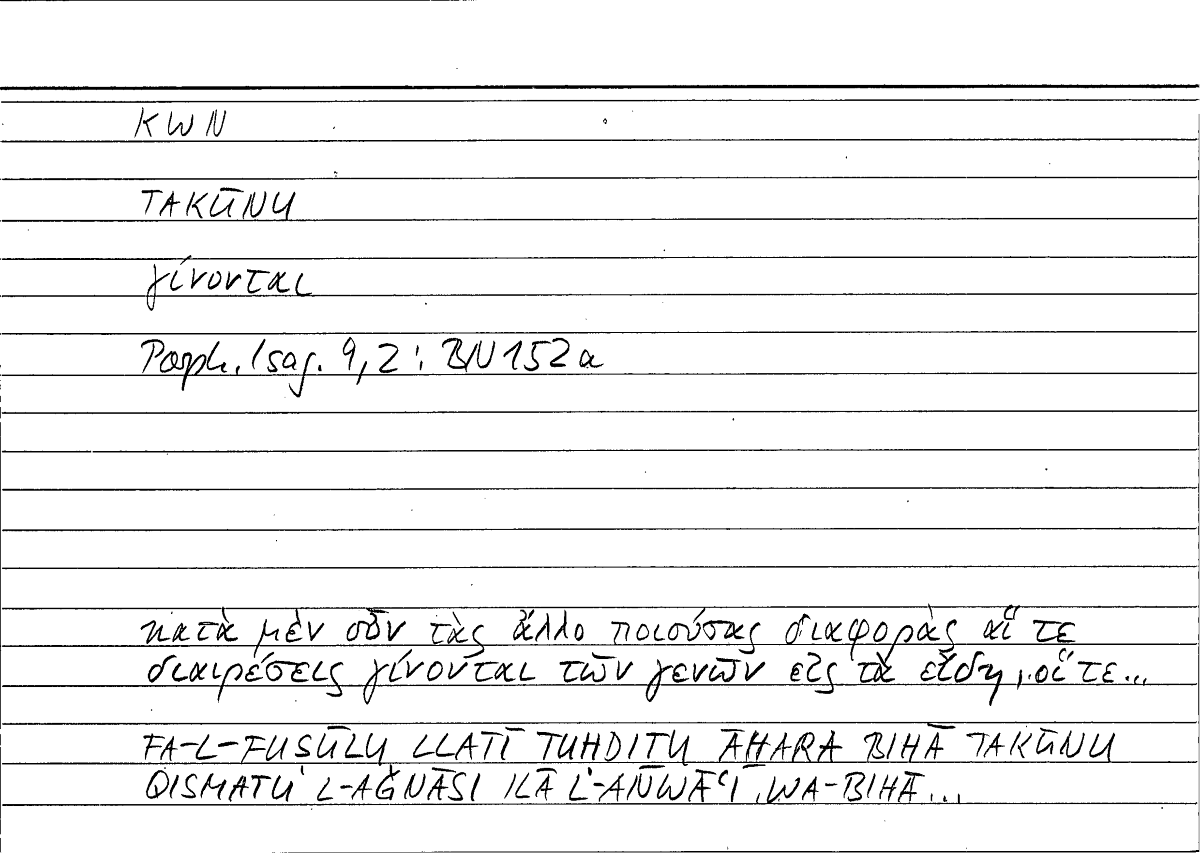 KWN
TAKŪNU
γίνονται
Porph. Isag. 9,2 : BN 152a
κατὰ μὲν οὖν τὰς ἄλλο ποιούσας διαφορὰς αἵ τε
διαιρέσεις γίνονται τῶν γενῶν εἰς τὰ εἴδη, οἵ τε...
FA-L-FUSŪLU LLATĪ TUHDITU ĀHARA BIHĀ TAKŪNU
QISMATU L-AǦNĀSI ILĀ L-ANWĀʿI, WA-BIHĀ...